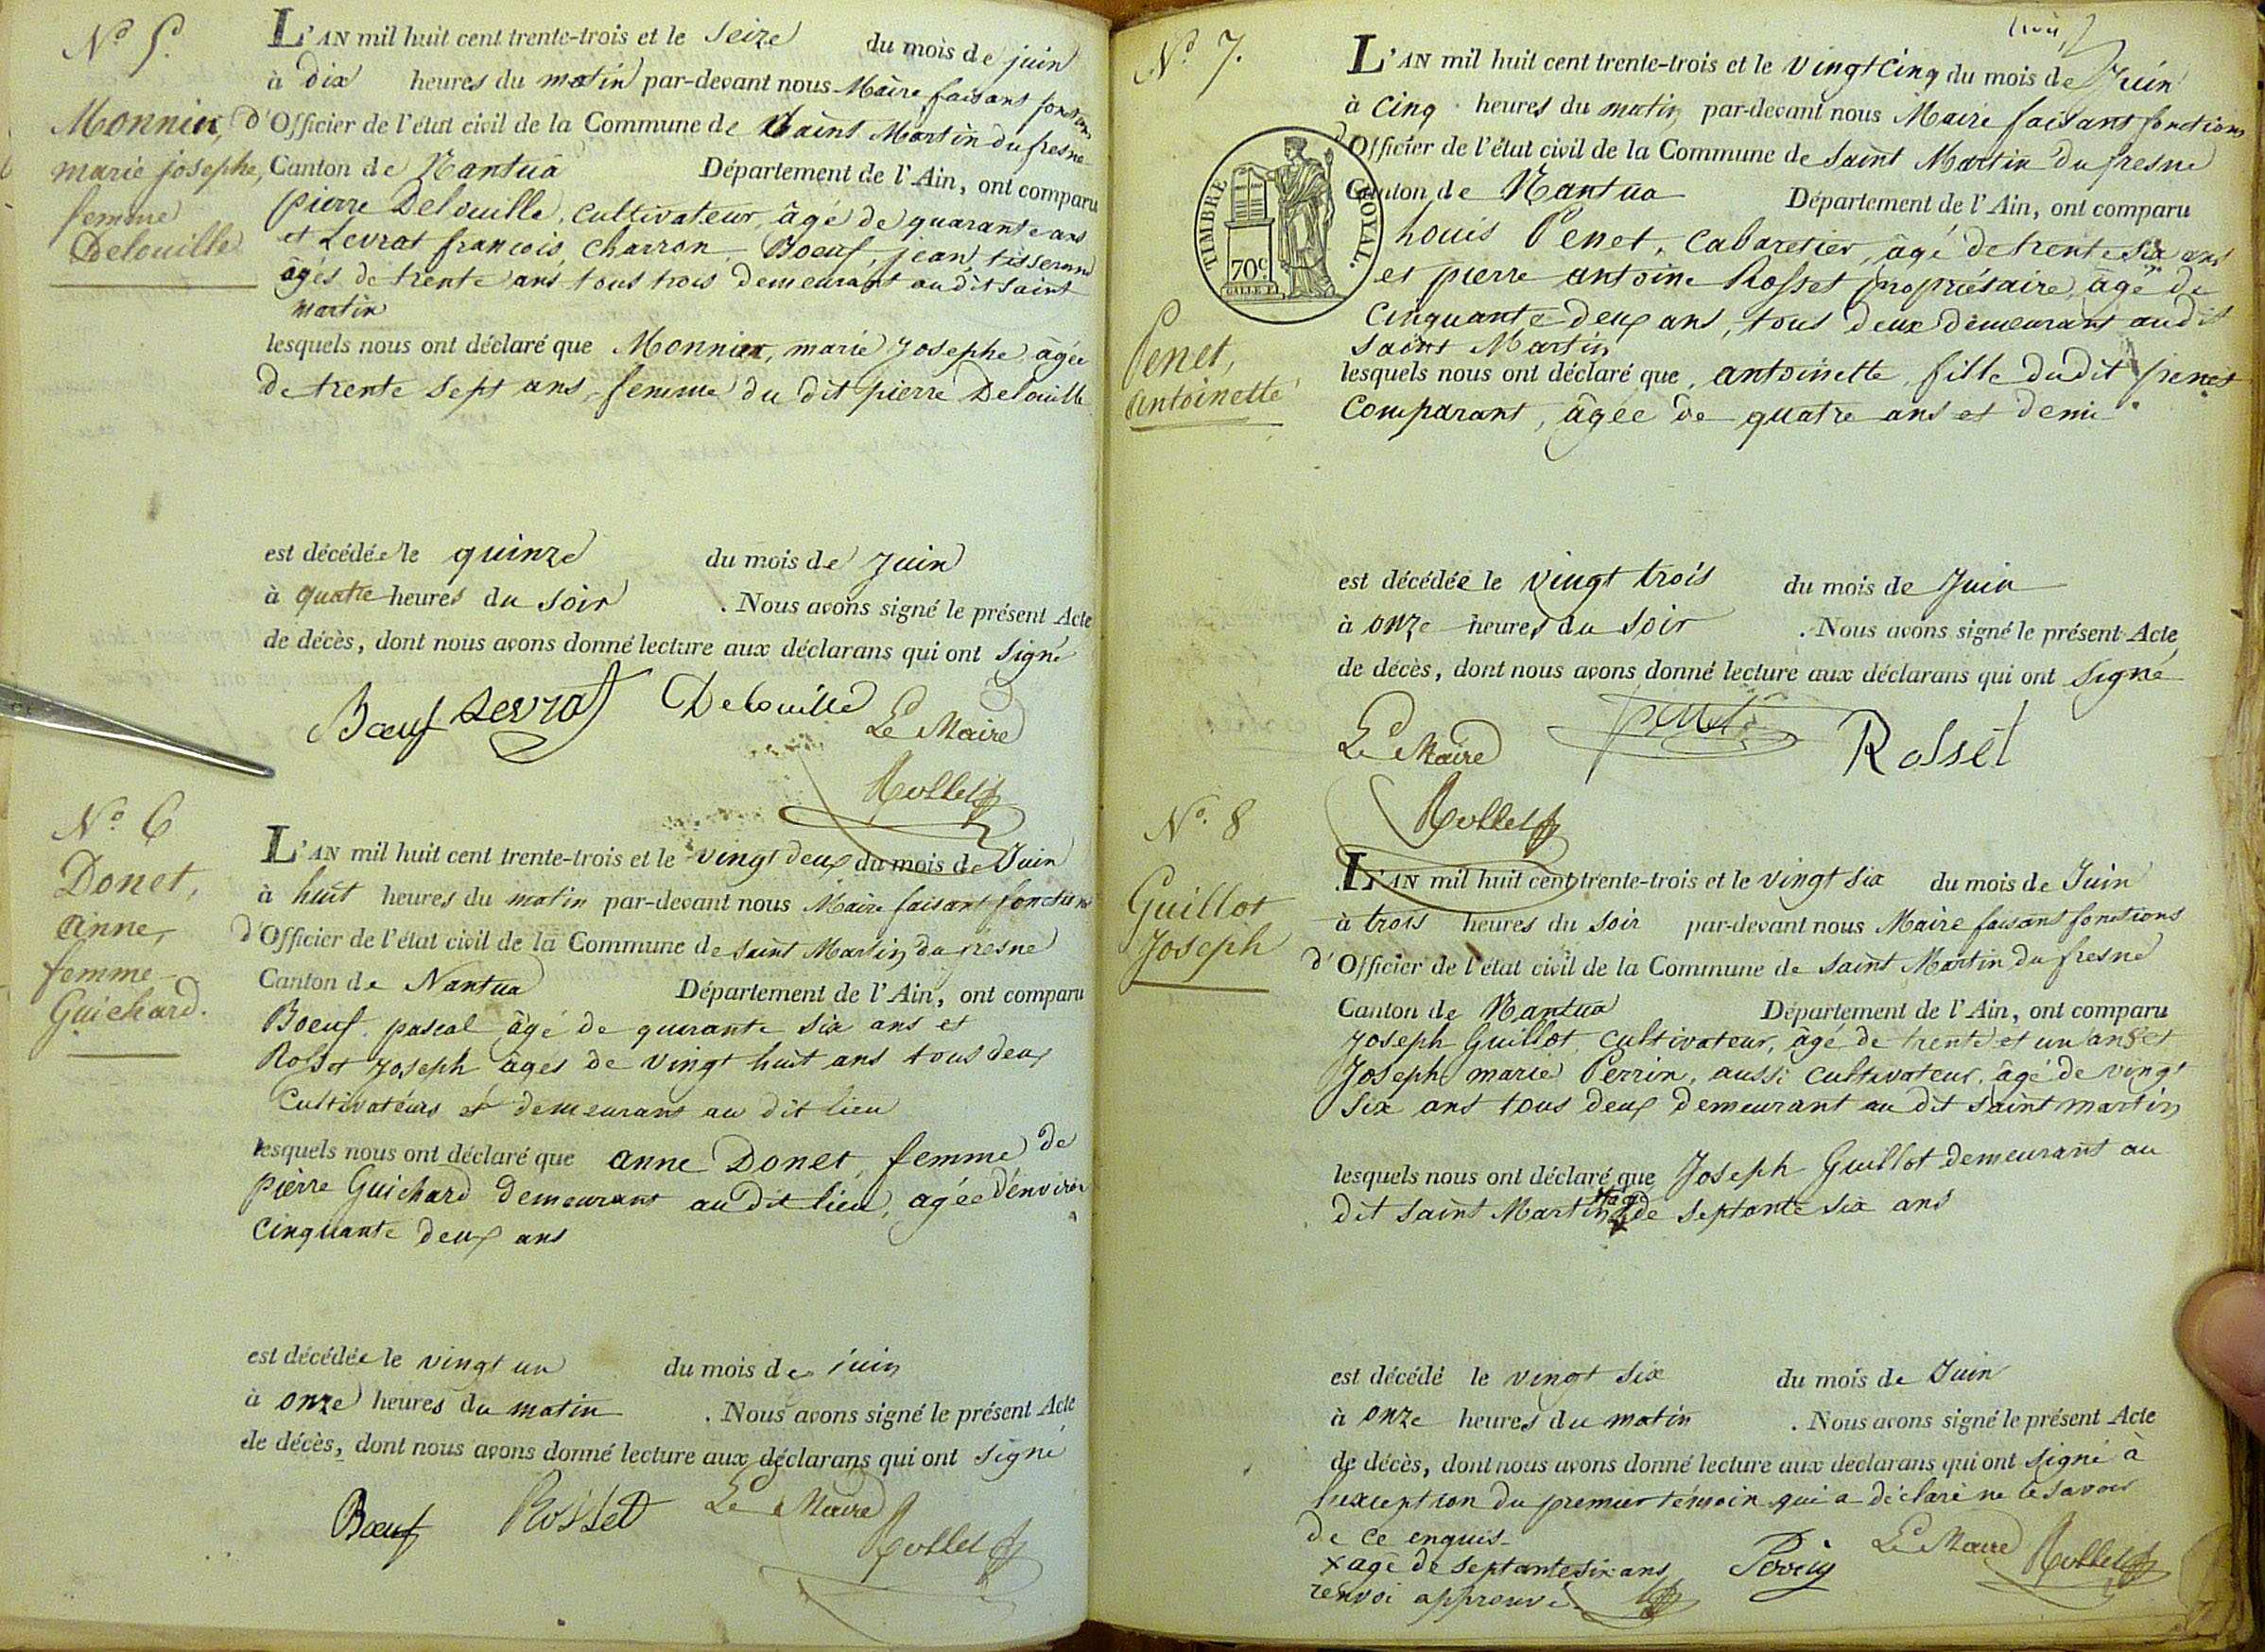 Nº 5.
Monnier,
marie josephe,
femme
Delouille
L'AN mil huit cent trente-trois et le seize du mois de juin
à dix heures du matin par-devant nous Maire faisant fonctions
d'Officier de l'état civil de la Commune de Saint Martin du fresne
Canton de Nantua Département de l'Ain, ont comparu
pierre Delouille, cultivateur, âgé de quarante ans
et Levrat francois, charron, Boeuf, jean, tisserand
âgés de trente ans tous trois demeurant au dit saint
martin
lesquels nous ont déclaré que Monnier, marie josephe, agée
de trente sept ans, femme du dit pierre Delouille
est décédée le quinze du mois de juin
à quatre heures du soir . Nous avons signé le présent Acte
de décès, dont nous avons donné lecture aux déclarans qui ont signé
Bœuf Levrat Delouille Le Maire
Rollet
Nº 6
Donet,
anne,
femme
Guichard.
L'AN mil huit cent trente-trois et le vingt deux du mois de Juin
à huit heures du matin par-devant nous Maire faisant fonctions
d'Officier de l'état civil de la Commune de saint Martin du fresne
Canton de Nantua Département de l'Ain, ont comparu
Boeuf pascal âgé de quarante six ans et
Rosset joseph âgés de vingt huit ans tous deux
cultivateurs et demeurant au dit lieu
lesquels nous ont déclaré que anne Donet, femme de
pierre Guichard demeurant au dit lieu, agée d'environ
cinquante deux ans
est décédée le vingt un du mois de juin
à onze heures du matin . Nous avons signé le présent Acte
de décès, dont nous avons donné lecture aux déclarans qui ont signé
Bœuf Rosset Le Maire
Rollet
Nº 7.
TIMBRE ROYAL.
70c
Penet,
antoinette
L'AN mil huit cent trente-trois et le vingt cinq du mois de Juin
à cinq heures du matin par-devant nous Maire faisant fonctions
d'Officier de l'état civil de la Commune de saint Martin du fresne
Canton de Nantua Département de l'Ain, ont comparu
Louis Penet, cabaretier, âgé de trente six ans
et pierre antoine Rosset propriétaire, âgé de
cinquante deux ans, tous deux demeurant au dit
saint Martin
lesquels nous ont déclaré que antoinette, fille du dit penet
comparant, âgée de quatre ans et demi
est décédée le vingt trois du mois de Juin
à onze heures du soir . Nous avons signé le présent Acte
de décès, dont nous avons donné lecture aux déclarans qui ont signé
Le Maire penet Rosset
Rollet
Nº 8
Guillot
Joseph
L'AN mil huit cent trente-trois et le vingt six du mois de Juin
à trois heures du soir par-devant nous Maire faisant fonctions
d'Officier de l'état civil de la Commune de saint Martin du fresne
Canton de Nantua Département de l'Ain, ont comparu
joseph Guillot, cultivateur, âgé de trente et un ans et
Joseph marie Perrin, aussi cultivateur, âgé de vingt
six ans tous deux demeurant au dit saint martin
lesquels nous ont déclaré que Joseph Guillot demeurant au
dit saint Martin de septante six ans
est décédé le vingt six du mois de Juin
à onze heures du matin . Nous avons signé le présent Acte
de décès, dont nous avons donné lecture aux déclarans qui ont signé à
l'exception du premier témoin qui a déclaré ne le savoir
de ce enquis
x agé de septante six ans Perrin Le Maire Rollet
renvoi approuvé